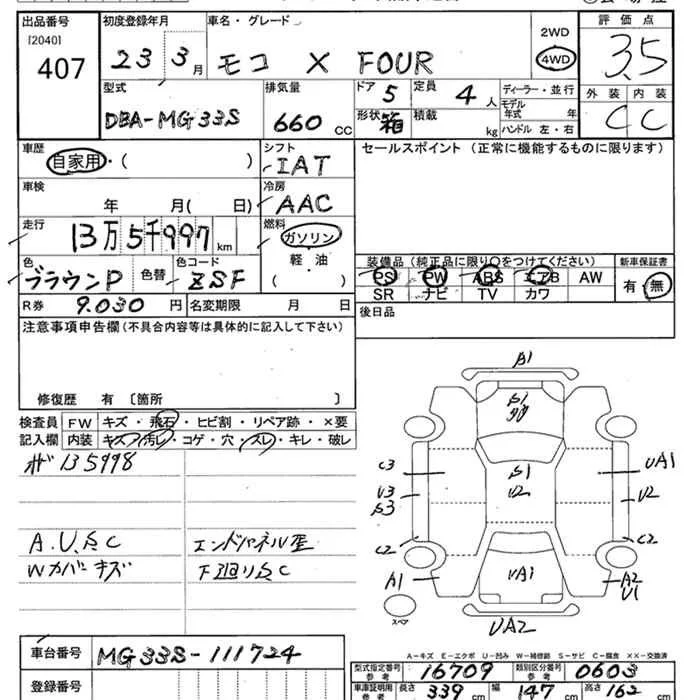 出品番号 初度登録年月 車名・グレード 評価点
[2040]
407 23 3月 モコ X FOUR 2WD 4WD 3.5
型式 排気量 ドア 5 定員 4人 ディーラー・並行 外装 内装
DBA-MG33S 660 CC 形状 箱 積載 kg モデル年式 年 C C
ハンドル 左・右
車歴 シフト セールスポイント (正常に機能するものに限ります)
自家用・( ) IAT
車検 冷房
年 月( 日) AAC
走行 燃料
13万5千997km ガソリン
色 色替 色コード 軽・油 装備品 (純正品に限り○をつけてください) 新車保証書
ブラウンP ZSF ( ) PS PW ABS エアB AW 有・無
R券 9.030円 名変期限 月 日 SR ナビ TV カワ
注意事項申告欄 (不具合内容等は具体的に記入して下さい) 後日品
修復歴 有 〔箇所 〕
検査員 FW キズ・飛石・ヒビ割・リペア跡・×要
記入欄 内装 キズ・汚レ・コゲ・穴・スレ・キレ・破レ
135998
A.U.S.C エンドパネル歪
Wカバーキズ 下廻りS.C
A1
S1
C3 S1 UA1
U3 U2 U2
S3
C2 C2
A1 UA1 A2
U1
スペア
UA2
A-キズ E-エクボ U-凹み W-補修跡 S-サビ C-腐食 XX-交換済
車台番号 MG33S-111724 型式指定番号 参考 16709 類別区分番号 参考 0603
登録番号 車庫証明用 参考 長さ 339cm 幅 147cm 高さ 162cm